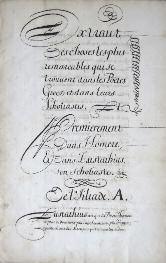 Extrait
Des choses les plus
remarcables qui se
trouuent dans les Poëtes
Grecs et dans leurs
Scholiastes.
Premierement
Dans Homere,
& Dans Eustathius
son Scholiaste.
De l'Iliade. A.
Eustathius